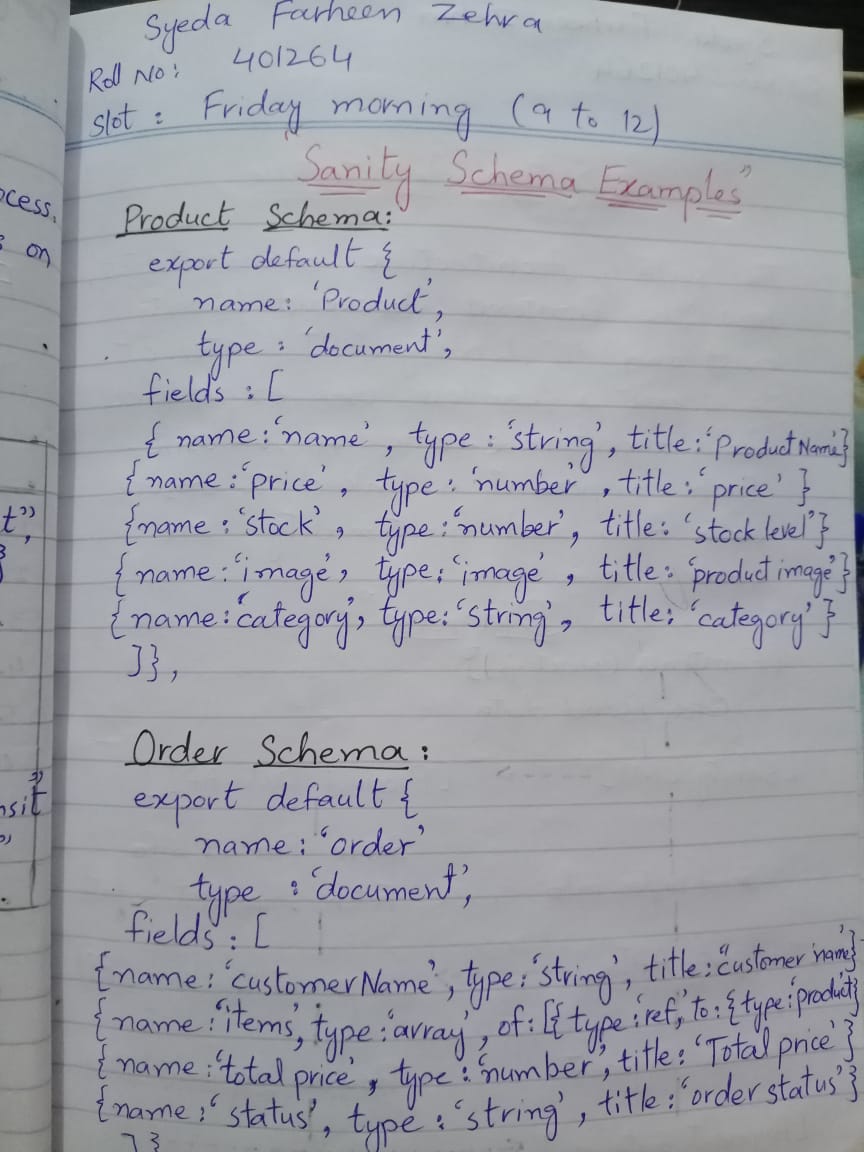 Syeda Farheen Zehra
Roll No: 401264
Slot: Friday morning (9 to 12)
Sanity Schema Examples"
Product Schema:
export default {
name: 'Product',
type : 'document',
fields : [
{ name: 'name', type : 'string', title: 'Product Name'}
{name: 'price', type: 'number', title: 'price' }
{name : 'stock', type: 'number', title: 'stock level'}
{ name: 'image', type: 'image', title: 'product image'}
{name: 'category', type: 'string', title: 'category' }
]},
Order Schema:
export default {
name: 'order'
type : 'document',
fields : [
{name: 'customerName', type: 'string', title: "customer name'}
{name: 'items', type: 'array', of: [{type: 'ref,' to: {type: 'product}
{name: 'total price', type: 'number', title: 'Total price'}
{name: 'status', type: 'string', title: 'order status'}
]}
cess.
on
t",
sit